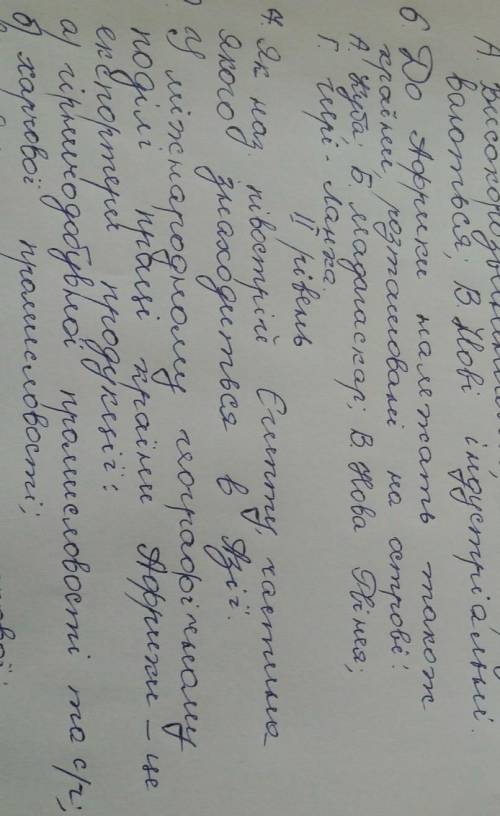 А. Високорозвинені;
ваються; В. Нові індустріальні.
6 До Африки належать також
країни, розташовані на острові:
А. Куба; Б. Мадагаскар; В. Нова Гвінея;
Г. Шрі-Ланка.
ІІ рівень
7. Як наз. півострів Єгипту, частина
якого знаходиться в Азії.
У міжнародному географічному
поділі праці країни Африки – це
експортери продукції:
а) гірничодобувної промисловості та с/г;
б) харчової промисловості;